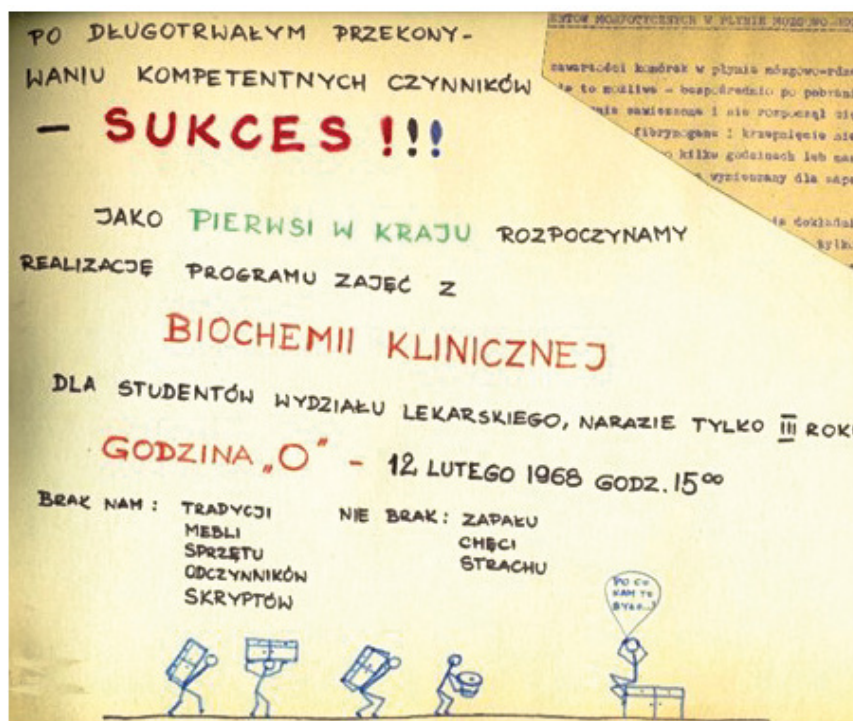 PO DŁUGOTRWAŁYM PRZEKONY-
WANIU KOMPETENTNYCH CZYNNIKÓW
– SUKCES !!!
JAKO PIERWSI W KRAJU ROZPOCZYNAMY
REALIZACJĘ PROGRAMU ZAJĘĆ Z
BIOCHEMII KLINICZNEJ
DLA STUDENTÓW WYDZIAŁU LEKARSKIEGO, NARAZIE TYLKO III ROKU
GODZINA „O” – 12 LUTEGO 1968 GODZ. 15⁰⁰
BRAK NAM: TRADYCJI
MEBLI
SPRZĘTU
ODCZYNNIKÓW
SKRYPTÓW
NIE BRAK: ZAPAŁU
CHĘCI
STRACHU
PO CO
NAM TO
BYŁO...?
MORFOTYCZNYCH W PŁYNIE
zawartości komórek w płynie mózgowo-rdze
to możliwe – bezpośrednio po pobrani
zawieszone i nie rozpoczął się
fibrynogenu i krzepnięcie nie
kilku godzinach lub
wymieszany dla zape
dokładn
tylko